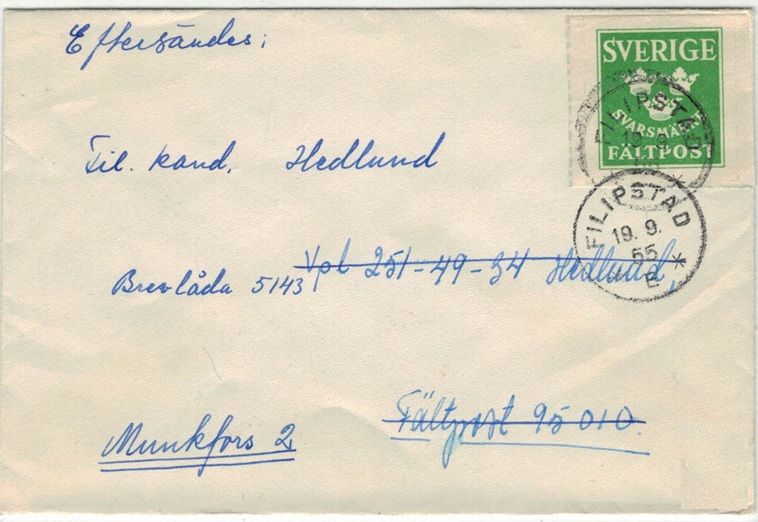 Eftersändes:
SVERIGE
SVARSMÄRKE
FÄLTPOST
FILIPSTAD
Fil. kand. Hedlund
FILIPSTAD
19. 9.
55
B
Vpl 251-49-54 Hedlund,
Brevlåda 5143
Fältpost 95010.
Munkfors 2